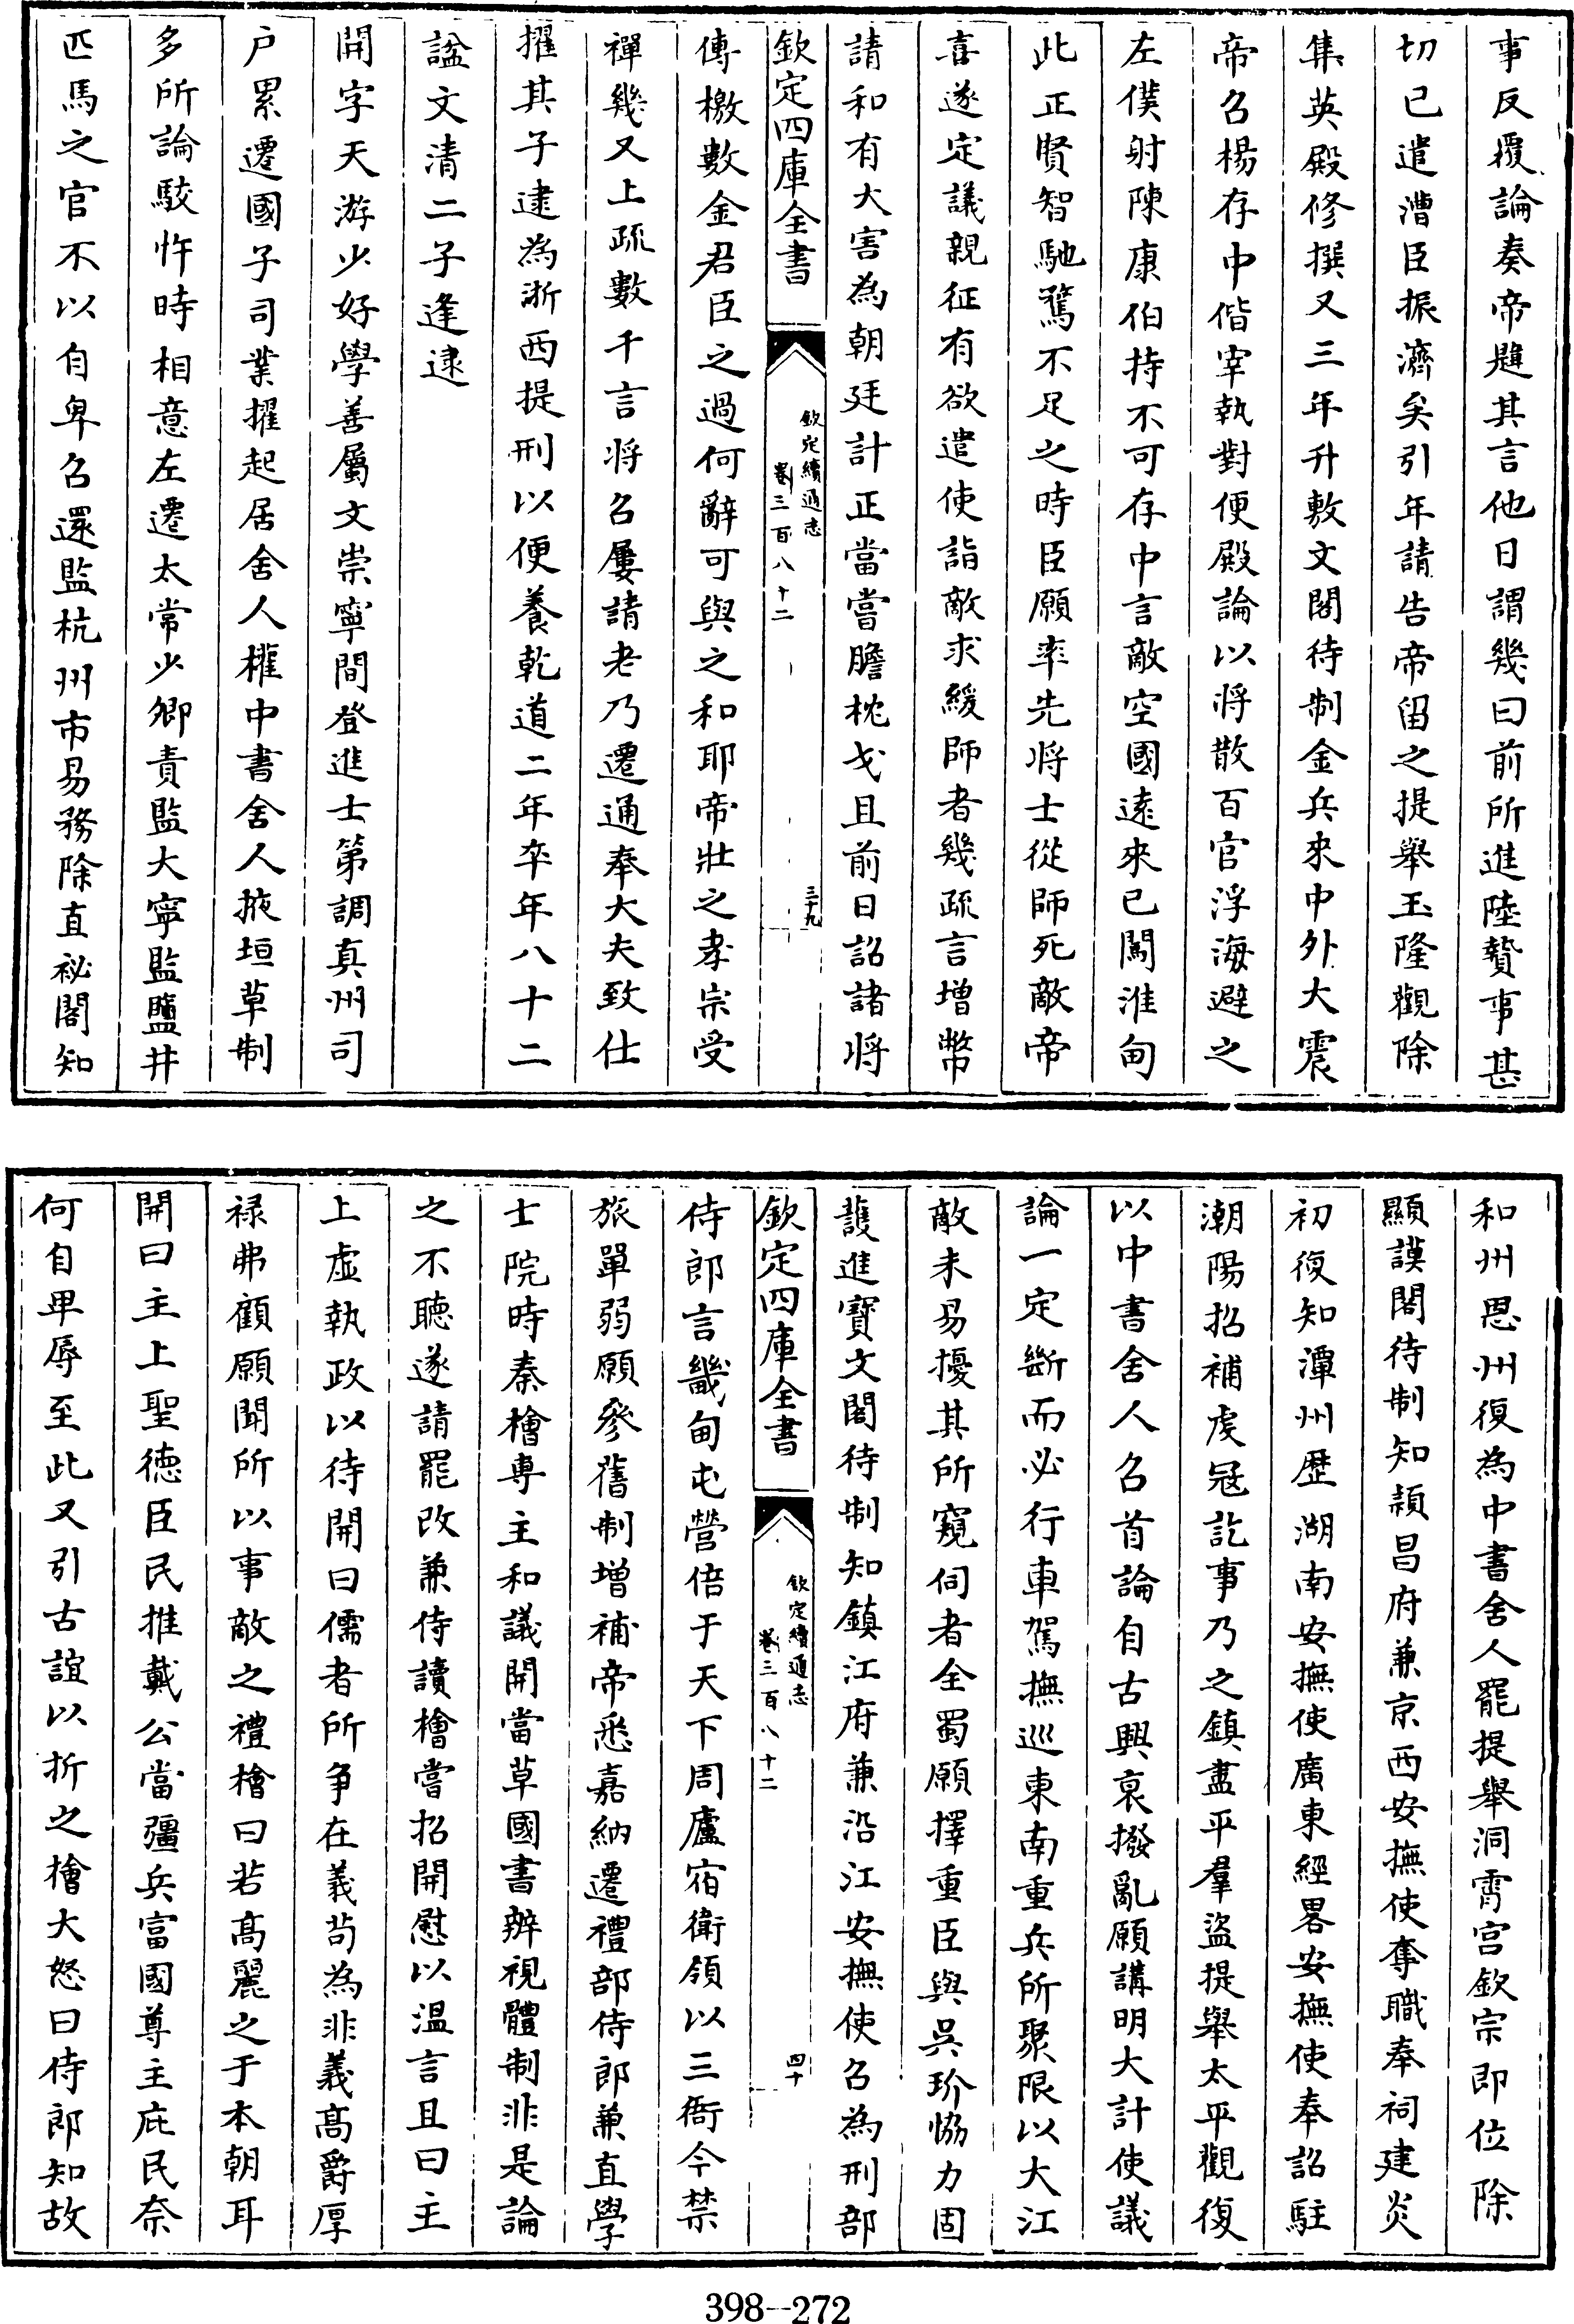 事反覆論奏帝韙其言他日謂幾曰前所進陸贄事甚
切已遣漕臣振濟矣引年請告帝留之提舉玉隆觀除
集英殿修撰又三年升敷文閣待制金兵來中外大震
帝召楊存中偕宰執對便殿論以將散百官浮海避之
左僕射陳康伯持不可存中言敵空國遠來已闖淮甸
此正賢智馳騖不足之時臣願率先將士從師死敵帝
喜遂定議親征有欲遣使詣敵求緩師者幾疏言增幣
請和有大害為朝廷計正當嘗膽枕戈且前日詔諸將
欽定四庫全書
欽定續通志
卷三百八十二
三十九
傳檄數金君臣之過何辭可與之和耶帝壯之孝宗受
禪幾又上疏數千言將召屢請老乃遷通奉大夫致仕
擢其子逮為浙西提刑以便養乾道二年卒年八十二
諡文清二子逢逮
開字天游少好學善屬文崇寧間登進士第調真州司
户累遷國子司業擢起居舍人權中書舍人掖垣草制
多所論駮忤時相意左遷太常少卿責監大寧監鹽井
匹馬之官不以自卑召還監杭州市易務除直祕閣知
和州恩州復為中書舍人罷提舉洞霄宮欽宗即位除
顯謨閣待制知潁昌府兼京西安撫使奪職奉祠建炎
初復知潭州歷湖南安撫使廣東經畧安撫使奉詔駐
潮陽招補虔冦訖事乃之鎮盡平羣盜提舉太平觀復
以中書舍人召首論自古興衰撥亂願講明大計使議
論一定斷而必行車駕撫巡東南重兵所聚限以大江
敵未易擾其所窺伺者全蜀願擇重臣與吳玠協力固
護進寶文閣待制知鎮江府兼沿江安撫使召為刑部
欽定四庫全書
欽定續通志
卷三百八十二
四十
侍郎言畿甸屯營倍于天下周廬宿衛領以三衙今禁
旅單弱願參舊制增補帝悉嘉納遷禮部侍郎兼直學
士院時秦檜專主和議開當草國書辨視體制非是論
之不聽遂請罷改兼侍讀檜嘗招開慰以温言且曰主
上虛執政以待開曰儒者所争在義苟為非義髙爵厚
祿弗顧願聞所以事敵之禮檜曰若髙麗之于本朝耳
開曰主上聖德臣民推戴公當彊兵富國尊主庇民奈
何自卑辱至此又引古誼以折之檜大怒曰侍郎知故
398—272